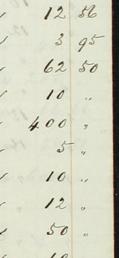 12 56
3 95
62 50
10 "
400 "
5 "
10 "
12 "
50 "
10